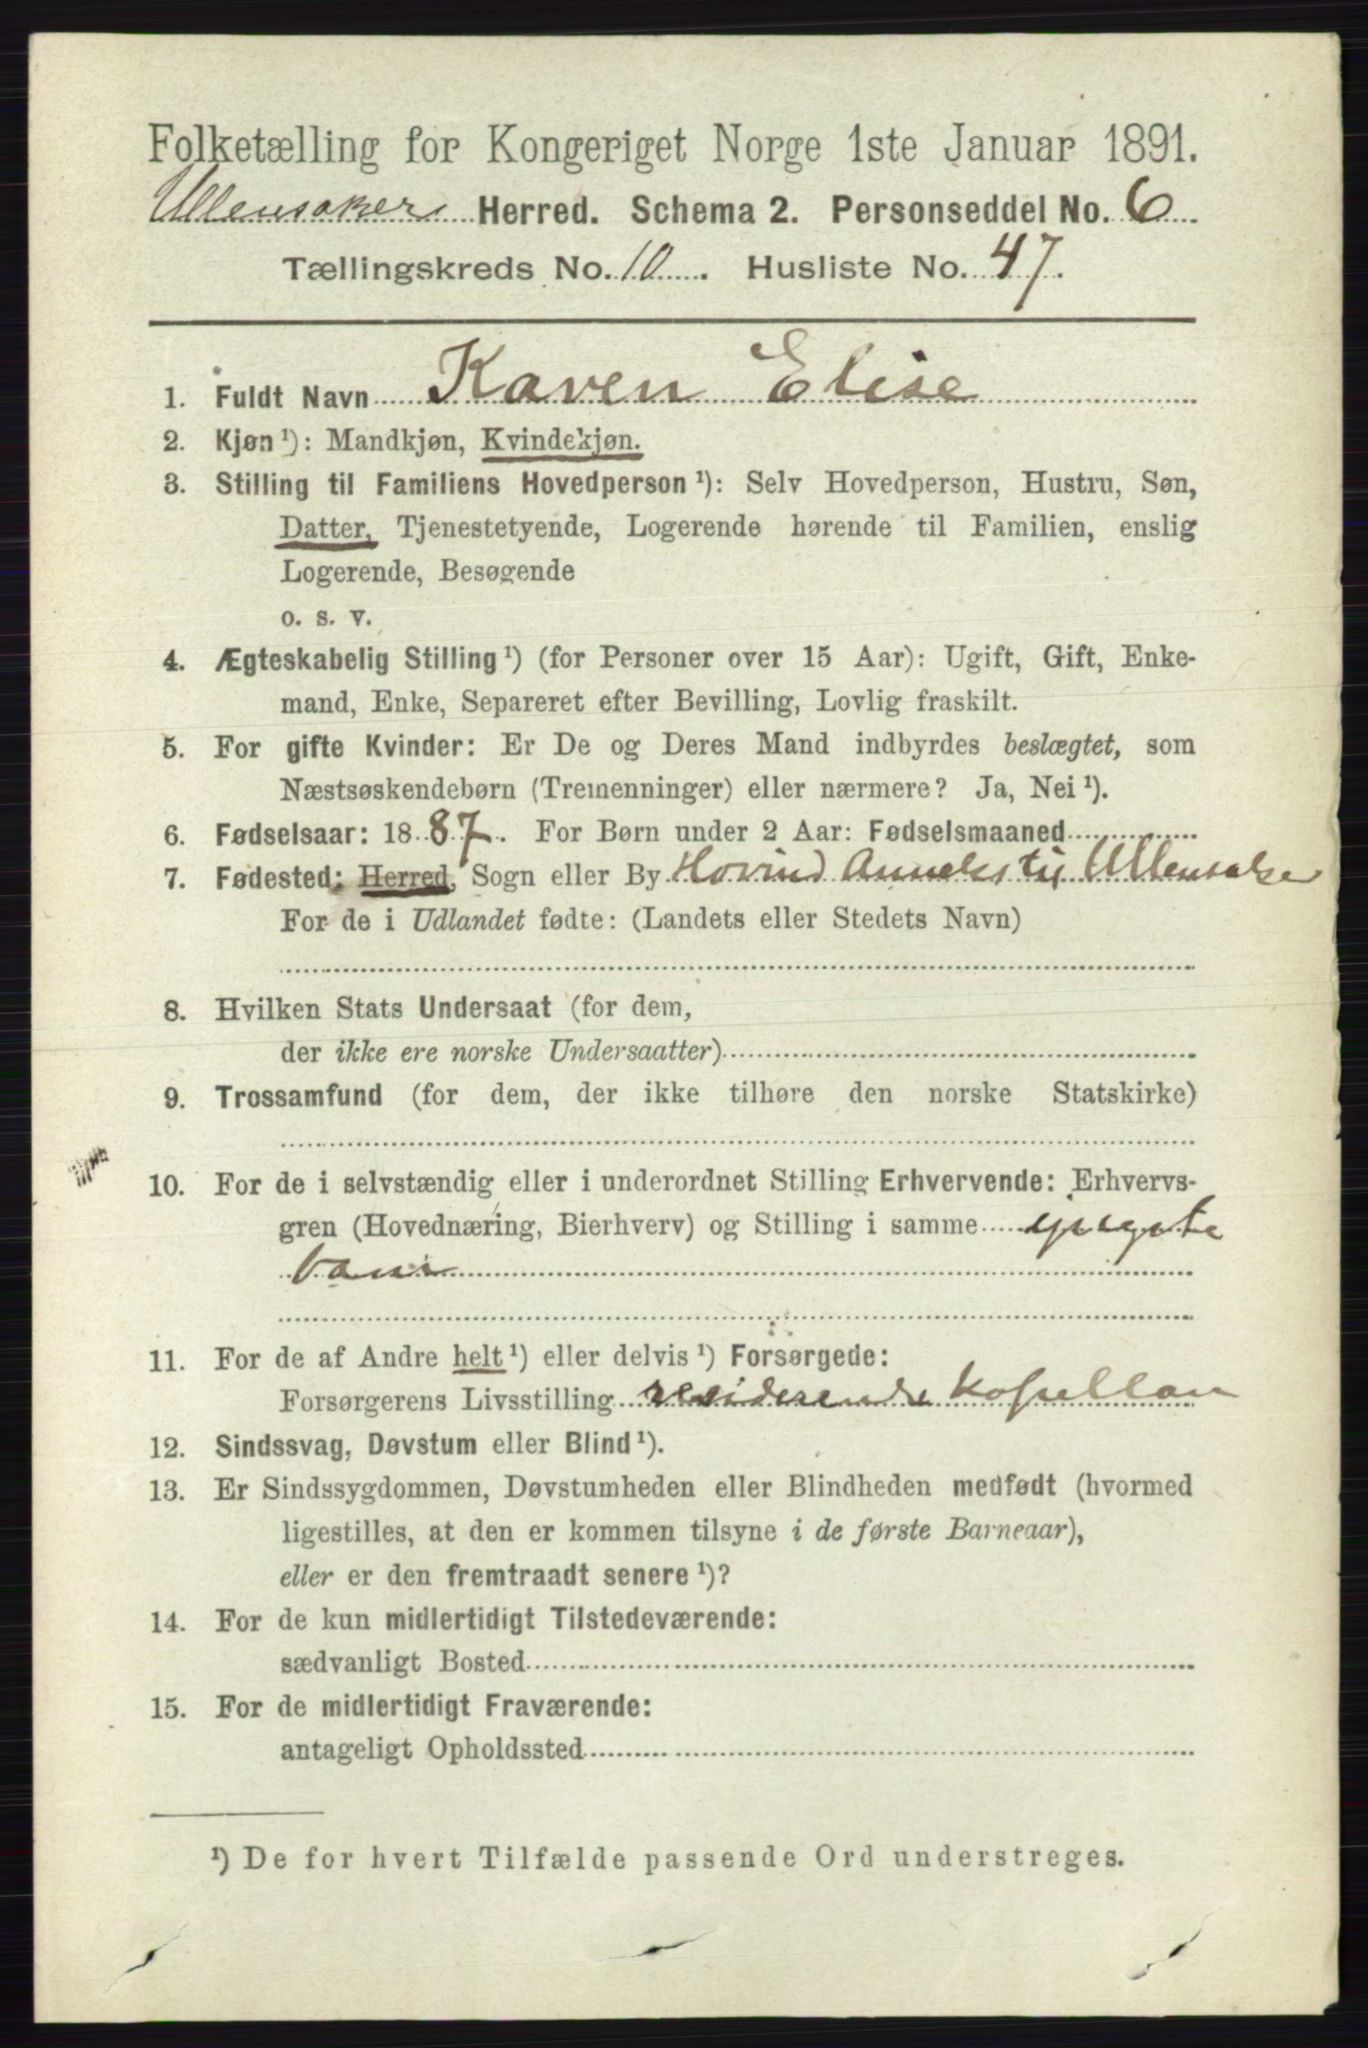 Folketælling for Kongeriget Norge 1ste Januar 1891.
Ullensaker Herred. Schema 2. Personseddel No. 6
Tællingskreds No. 10. Husliste No. 47.
1. Fuldt Navn Karen Elise
2. Kjøn ¹): Mandkjøn, Kvindekjøn.
3. Stilling til Familiens Hovedperson ¹): Selv Hovedperson, Hustru, Søn,
Datter, Tjenestetyende, Logerende hørende til Familien, enslig
Logerende, Besøgende
o. s. v.
4. Ægteskabelig Stilling ¹) (for Personer over 15 Aar): Ugift, Gift, Enke-
mand, Enke, Separeret efter Bevilling, Lovlig fraskilt.
5. For gifte Kvinder: Er De og Deres Mand indbyrdes beslægtet, som
Næstsøskendebørn (Tremenninger) eller nærmere? Ja, Nei ¹).
6. Fødselsaar: 1887. For Børn under 2 Aar: Fødselsmaaned
7. Fødested: Herred, Sogn eller By Hovind Anneks til Ullensaker
For de i Udlandet fødte: (Landets eller Stedets Navn)
8. Hvilken Stats Undersaat (for dem,
der ikke ere norske Undersaatter)
9. Trossamfund (for dem, der ikke tilhøre den norske Statskirke)
10. For de i selvstændig eller i underordnet Stilling Erhvervende: Erhvervs-
gren (Hovednæring, Bierhverv) og Stilling i samme
11. For de af Andre helt ¹) eller delvis ¹) Forsørgede:
Forsørgerens Livsstilling residerende kapellan
12. Sindssvag, Døvstum eller Blind ¹).
13. Er Sindssygdommen, Døvstumheden eller Blindheden medfødt (hvormed
ligestilles, at den er kommen tilsyne i de første Barneaar),
eller er den fremtraadt senere ¹)?
14. For de kun midlertidigt Tilstedeværende:
sædvanligt Bosted
15. For de midlertidigt Fraværende:
antageligt Opholdssted
¹) De for hvert Tilfælde passende Ord understreges.